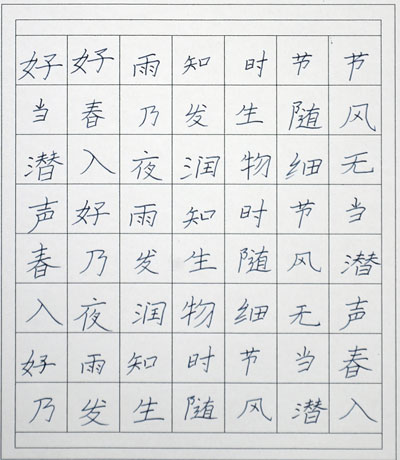 好好雨知时节节
当春乃发生随风
潜入夜润物细无
声好雨知时节当
春乃发生随风潜
入夜润物细无声
好雨知时节当春
乃发生随风潜入